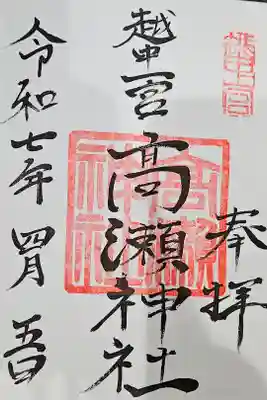 越中一宮
奉拝
越中一宮
高瀬神社
高瀬
神社
令和七年四月五日